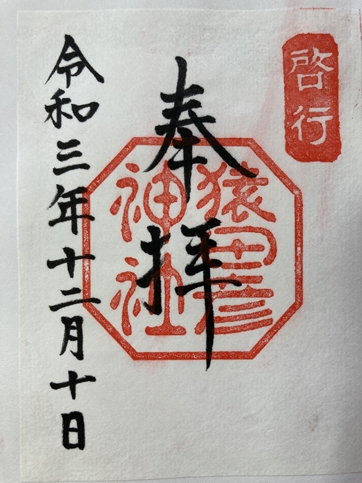 啓行
奉拝
猿田彦
神社
令和三年十二月十日